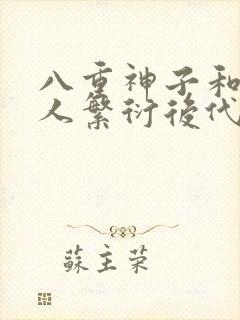 八重神子和
人繁衍後代
蘇主荣